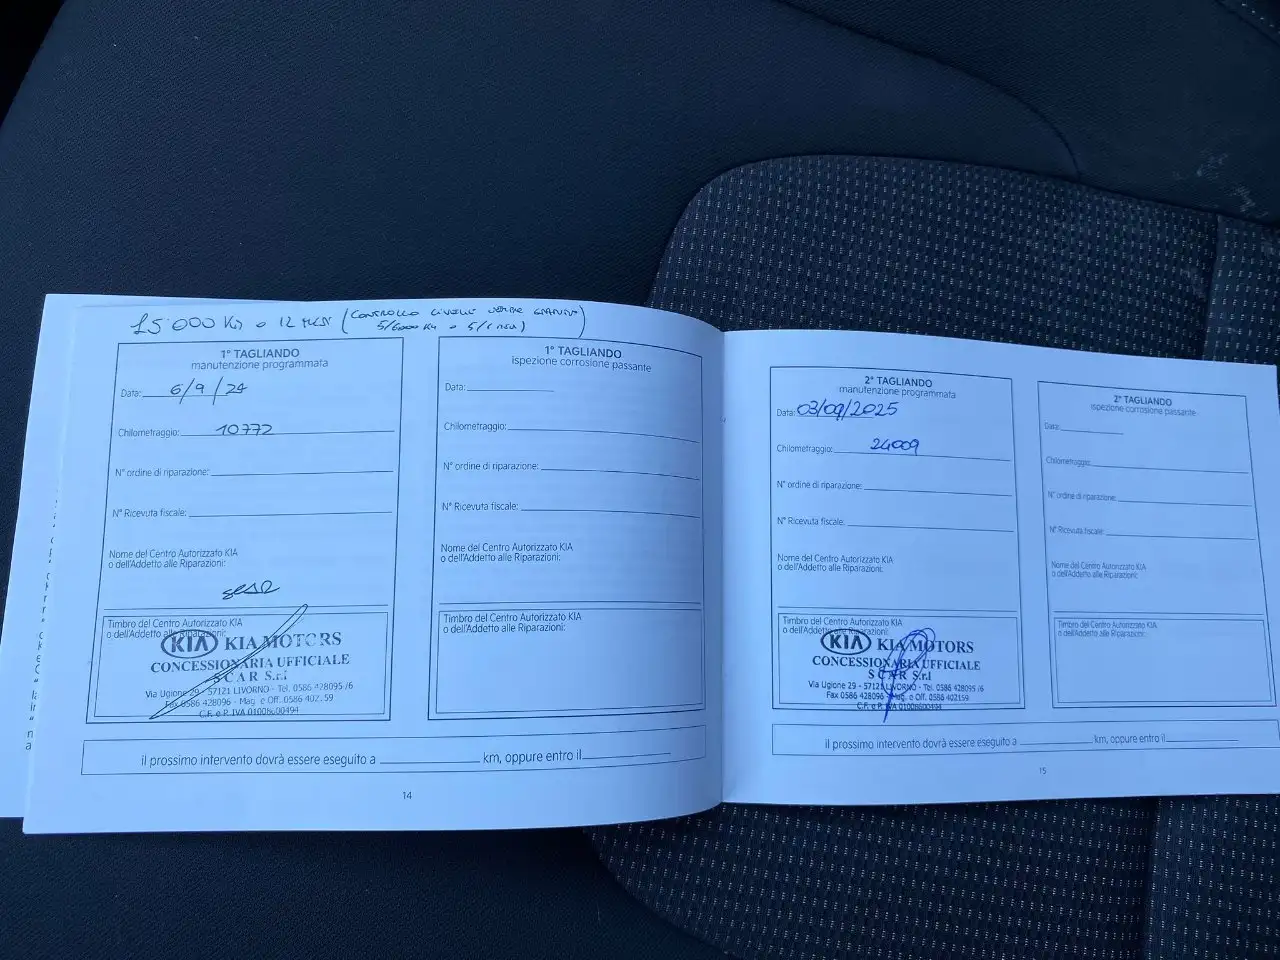 15.000 Km o 12 MESI (CONTROLLO LIVELLO
5/6000 Km o 5/6 MESI)
1° TAGLIANDO
manutenzione programmata
Data: 6/9/24
Chilometraggio: 10772
N° ordine di riparazione:
N° Ricevuta fiscale:
Nome del Centro Autorizzato KIA
o dell'Addetto alle Riparazioni:
Timbro del Centro Autorizzato KIA
o dell'Addetto alle Riparazioni:
KIA KIA MOTORS
CONCESSIONARIA UFFICIALE
SCAR S.r.l
Via Ugione 29 - 57121 LIVORNO - Tel. 0586 428095 /6
Fax 0586 428096 - Mag. e Off. 0586 402159
C.F. e P. IVA 01008600494
1° TAGLIANDO
ispezione corrosione passante
Data:
Chilometraggio:
N° ordine di riparazione:
N° Ricevuta fiscale:
Nome del Centro Autorizzato KIA
o dell'Addetto alle Riparazioni:
Timbro del Centro Autorizzato KIA
o dell'Addetto alle Riparazioni:
il prossimo intervento dovrà essere eseguito a km, oppure entro il
14
2° TAGLIANDO
manutenzione programmata
Data: 03/09/2025
Chilometraggio: 24009
N° ordine di riparazione:
N° Ricevuta fiscale:
Nome del Centro Autorizzato KIA
o dell'Addetto alle Riparazioni:
Timbro del Centro Autorizzato KIA
o dell'Addetto alle Riparazioni:
KIA KIA MOTORS
CONCESSIONARIA UFFICIALE
SCAR S.r.l
Via Ugione 29 - 57121 LIVORNO - Tel. 0586 428095 /6
Fax 0586 428096 - Mag. e Off. 0586 402159
C.F. e P. IVA 01008600494
2° TAGLIANDO
ispezione corrosione passante
Data:
Chilometraggio:
N° ordine di riparazione:
N° Ricevuta fiscale:
Nome del Centro Autorizzato KIA
o dell'Addetto alle Riparazioni:
Timbro del Centro Autorizzato KIA
o dell'Addetto alle Riparazioni:
il prossimo intervento dovrà essere eseguito a km, oppure entro il
15